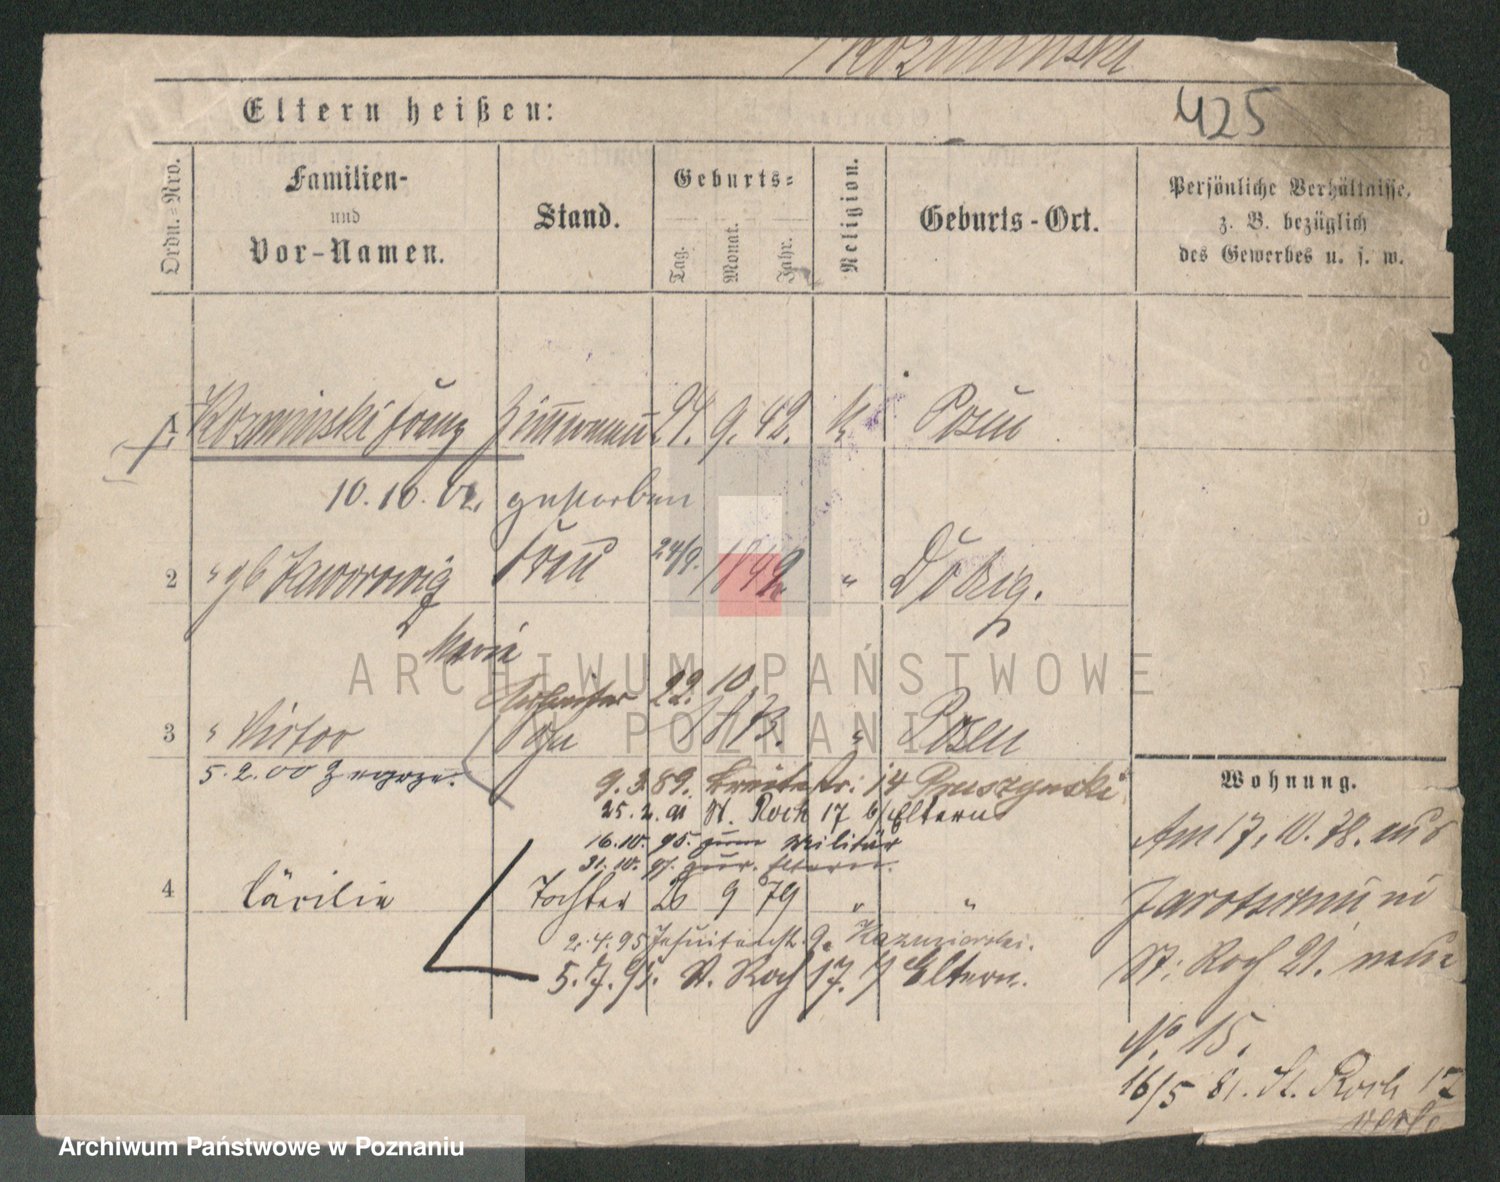 Kozminski
425
Eltern heißen:
Ordn.=Nro.
Familien-
und
Vor-Namen.
Stand.
Geburts=
Tag.
Monat.
Jahr.
Religion.
Geburts-Ort.
Persönliche Verhältnisse,
z. B. bezüglich
des Gewerbes u. s. w.
1 Kozminski Franz Zimmermann 24. 9. 42. K Posen
10. 10. 02. gestorben
2 " gb Jaworowig Frau 24/9. 1842 " Dobrig.
Maria
Arbeiter 22. 10.
3 " Victor Sohn 73. " Posen
5. 2. 00 Zegrze.
9. 3. 89. Breitestr. 14 Pruszynski
25. 2. 91 St. Roch 17 b/Eltern
16. 10. 95. zum Militär
31. 10. 97. zur. Eltern.
4 Cäcilie Tochter 26 9 79 " "
2. 4. 95 Jesuitenstr. 9. Kazmierski.
5. 7. 95. St. Roch 17. b/ Eltern.
Wohnung.
Am 17. 10. 78. aus
Jarotschin in
St. Roch 21. neue
No. 15.
16/5 81. St. Roch 17
ARCHIWUM PAŃSTWOWE
W POZNANIU
Archiwum Państwowe w Poznaniu